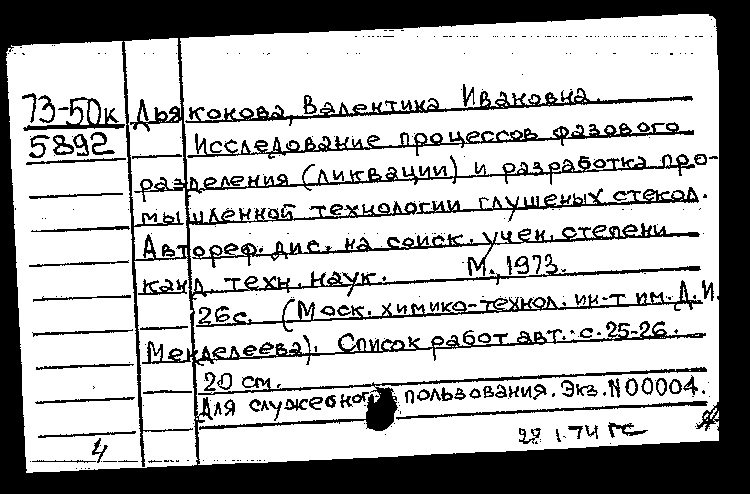 73-50к Дьяконова, Валентина Ивановна.
5892 Исследование процессов фазового
разделения (ликвации) и разработка про-
мышленной технологии глушеных стекол.
Автореф. дис. на соиск. учен. степени
канд. техн. наук. М., 1973.
26с. (Моск. химико-технол. ин-т им. Д.И.
Менделеева). Список работ авт.: с. 25-26.
20 см.
Для служебного пользования. Экз. N00004.
4 22 1.74 ГС